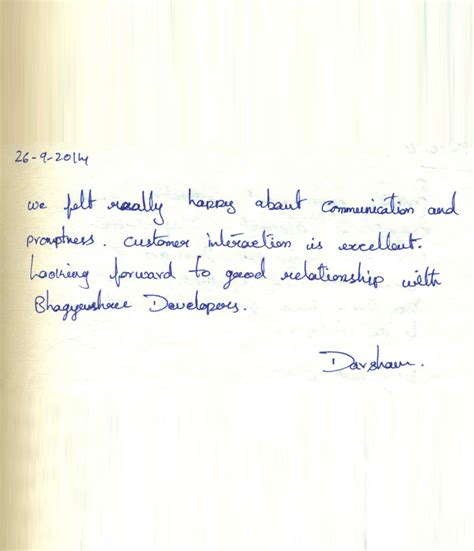 26-9-2014
we felt really happy about communication and
promptness. customer interaction is excellent.
Looking forward to good relationship with
Bhagyashree Developers.
Darshan.